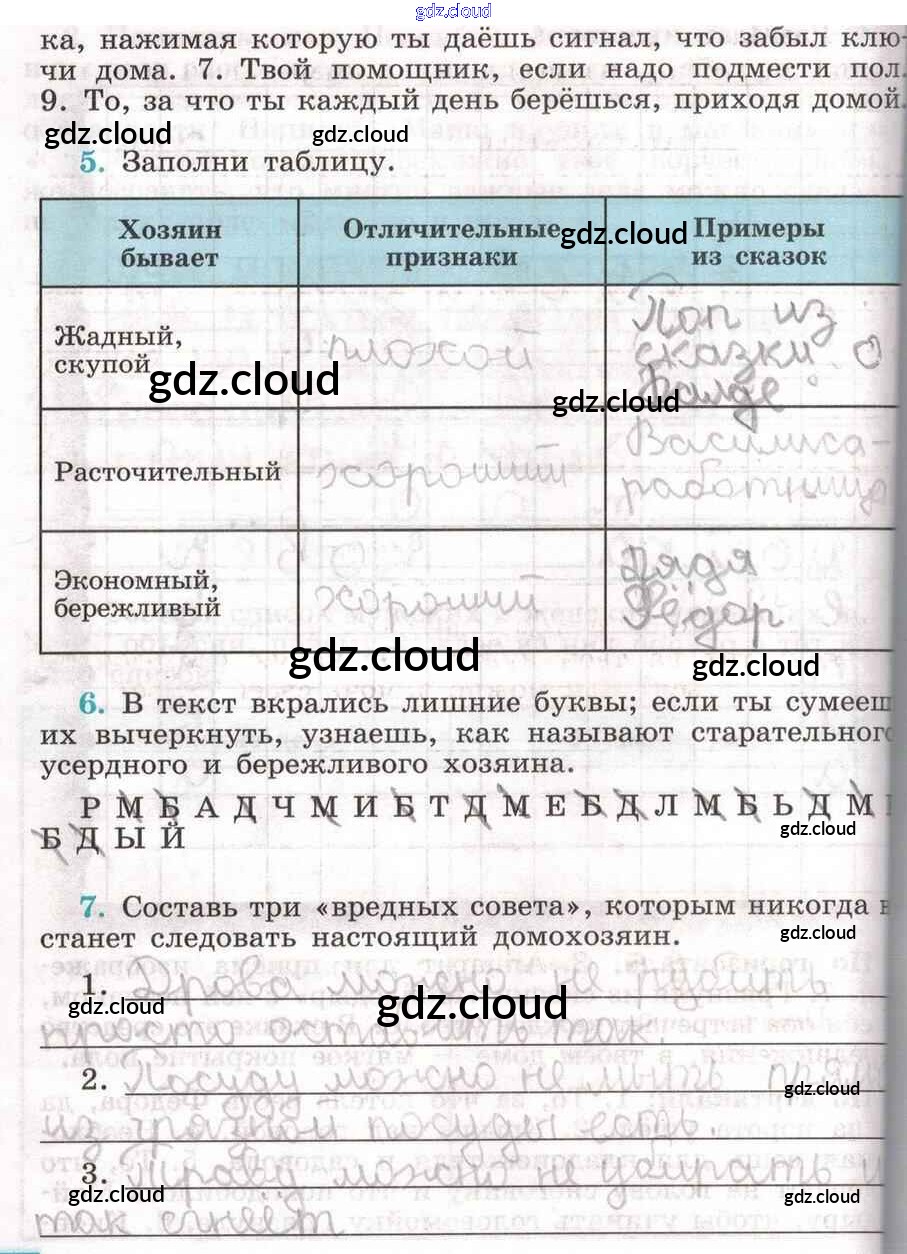 gdz.cloud
ка, нажимая которую ты даёшь сигнал, что забыл клю-
чи дома. 7. Твой помощник, если надо подмести пол.
9. То, за что ты каждый день берёшься, приходя домой.
gdz.cloud gdz.cloud
5. Заполни таблицу.
Хозяин бывает
Отличительные признаки
gdz.cloud
Примеры из сказок
Жадный,
скупой
плохой
Поп из
сказки о
Балде
gdz.cloud
gdz.cloud
Расточительный
хороший
Василиса-
работница
Экономный,
бережливый
хороший
Дядя
Фёдор
gdz.cloud
gdz.cloud
6. В текст вкрались лишние буквы; если ты сумееш
их вычеркнуть, узнаешь, как называют старательного
усердного и бережливого хозяина.
Р М Б А Д Ч М И Б Т Д М Е Б Д Л М Б Ь Д М
Б Д Ы Й
gdz.cloud
7. Составь три «вредных совета», которым никогда н
станет следовать настоящий домохозяин.
gdz.cloud
1. Дрова можно не рубить
gdz.cloud gdz.cloud
просто оставить так.
2. Посуду можно не мыть прям
gdz.cloud
из грязной посуды есть.
3. Траву можно не убирать и
gdz.cloud gdz.cloud
так сгниет